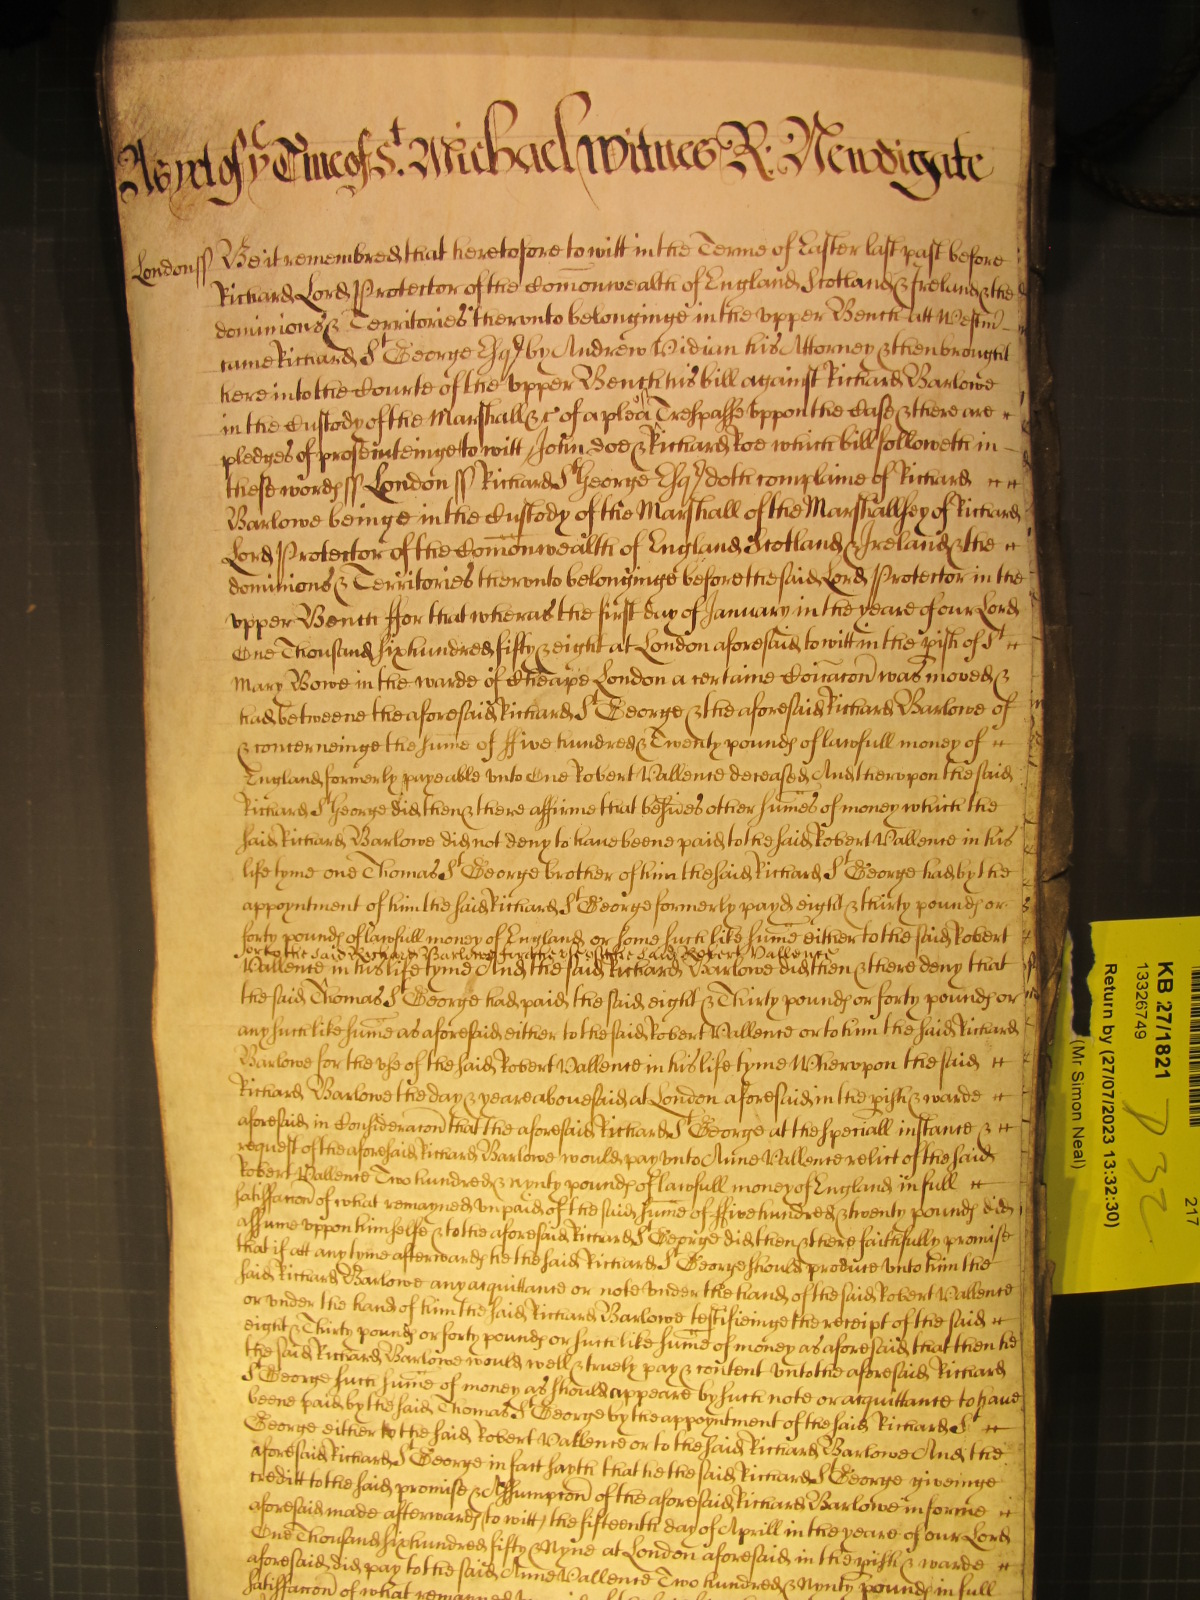 As yet of ye Time of St. Michael witnes R: Newdigate
Londonss Be it remembred that heretofore to witt in the Terme of Easter last past before
Richard Lord Protector of the Comonwealth of England Scotland & Ireland & the
dominions & Territories therunto belonginge in the upper Bench att Westm
came Richard St George Esqr by Andrew Vidian his Attorney & then brought
here into the Courte of the upper Bench his bill against Richard Barlowe
in the Custody of the Marshall &c of a plea of Trespasse uppon the Case & there are
pledges of prosecuteinge to witt John Doe & Richard Roe which bill followeth in
these words ss London ss Richard St George Esqr doth complaine of Richard
Barlowe beinge in the Custody of the Marshall of the Marshallsey of Richard
Lord Protector of the Comonwealth of England Scotland & Ireland & the
dominions & Territories therunto belonginge before the said Lord Protector in the
upper Bench ffor that wheras the first day of January in the yeare of our Lord
One Thousand six hundred fifty & eight at London aforesaid to witt in the pish of St
Mary Bowe in the warde of Cheape London a certaine Coicacon was moved &
had betweene the aforesaid Richard St George & the aforesaid Richard Barlowe of
& concerneinge the sume of ffive hundred & Twenty pounds of lawfull money of
England formerly payeable unto One Robert Vallence deceased And therupon the said
Richard St George did then & there affirme that besides other sumes of money which the
said Richard Barlowe did not deny to have beene paid to the said Robert Vallence in his
life tyme one Thomas St George brother of him the said Richard St George had by the
appoyntment of him the said Richard St George formerly payd eight & thirty pounds or
forty pounds of lawfull money of England or some such like sume either to the said Robert
or to the said Richard Barlowe for the use of the said Robert Vallence
Vallence in his life tyme And the said Richard Barlowe did then & there deny that
the said Thomas St George had paid the said eight & Thirty pounds or forty pounds or
any such like sume as aforesaid either to the said Robert Vallence or to him the said Richard
Barlowe for the use of the said Robert Vallence in his life tyme Wherupon the said
Richard Barlowe the day & yeare abovesaid at London aforesaid in the pish & warde
aforesaid in Consideracon that the aforesaid Richard St George at the speciall instance &
request of the aforesaid Richard Barlowe would pay unto Anne Vallence relict of the said
Robert Vallence Two hundred & nynty pounds of lawfull money of England in full
satisfaccon of what remayned unpaid of the said sume of ffive hundred & twenty pounds did
assume uppon himselfe & to the aforesaid Richard St George did then & there faithfully promise
that if att any tyme afterwards he the said Richard St George should produce unto him the
said Richard Barlowe any acquittance or note under the hand of the said Robert Vallence
or under the hand of him the said Richard Barlowe testifieinge the receipt of the said
eight & Thirty pounds or forty pounds or such like sume of money as aforesaid that then he
the said Richard Barlowe would well & truely pay & content unto the aforesaid Richard
St George such sume of money as should appeare by such note or acquittance to have
beene paid by the said Thomas St George by the appoyntment of the said Richard St
George either to the said Robert Vallence or to the said Richard Barlowe And the
aforesaid Richard St George in fact sayth that he the said Richard St George giveinge
creditt to the said promise & Assumpcon of the aforesaid Richard Barlowe in forme
aforesaid made afterwards (to witt) the fifteenth day of Aprill in the yeare of our Lord
One Thousand six hundred fifty & Nyne at London aforesaid in the pish & warde
aforesaid did pay to the said Anne Vallence Two hundred & Nynty pounds in full
satisfaccon of what remayned
217
KB 27/1821
13326749
D 32
Return by (27/07/2023 13:32:30)
(Mr Simon Neal)